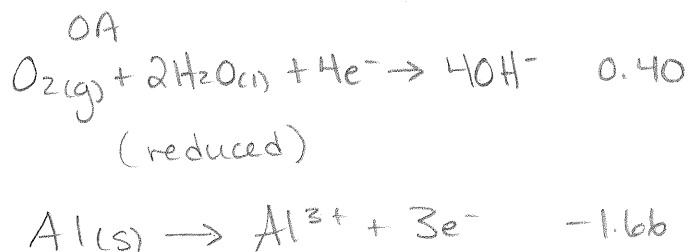 OA
O₂(g) + 2H₂O(l) + 4e⁻ → 4OH⁻ 0.40
(reduced)
Al(s) → Al³⁺ + 3e⁻ -1.66